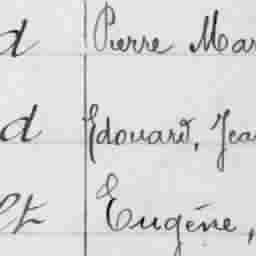 d Pierre Mar
d Edouard, Jea
lt Eugéne,